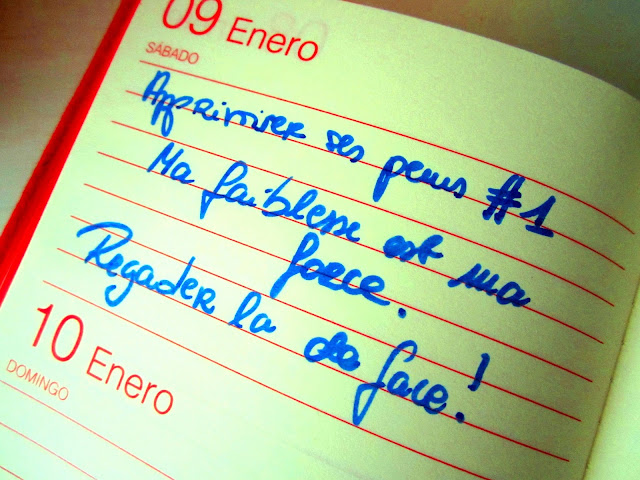 09 Enero
SÁBADO
ses peurs #1
Ma faiblesse est ma
force.
Regarder la de face!
10 Enero
DOMINGO